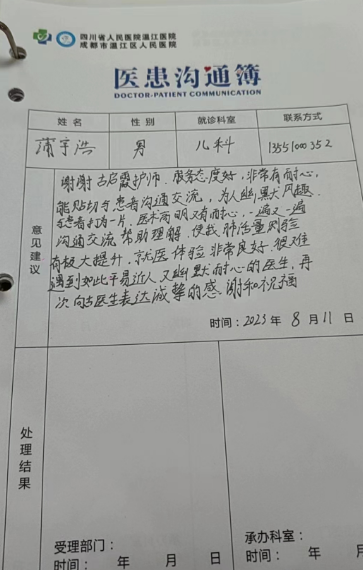 四川省人民医院温江医院
成都市温江区人民医院
医患沟通簿
DOCTOR-PATIENT COMMUNICATION
姓名 性别 就诊科室 联系方式
蒲宇浩 男 儿科
意见建议
谢谢古启霞护师.服务态度好,非常有耐心,
能贴切与患者沟通交流,为人幽默风趣.
与患者打成一片,医术高明又有耐心,一遍又一遍
沟通交流帮助理解.使我肺活量测验
有极大提升.就医体验非常良好.很难
遇到如此平易近人又幽默耐心的医生,再
次向古医生表达诚挚的感谢和祝福
时间:2023年8月11日
处理结果
受理部门: 承办科室:
时间: 年 月 日 时间: 年 月 日